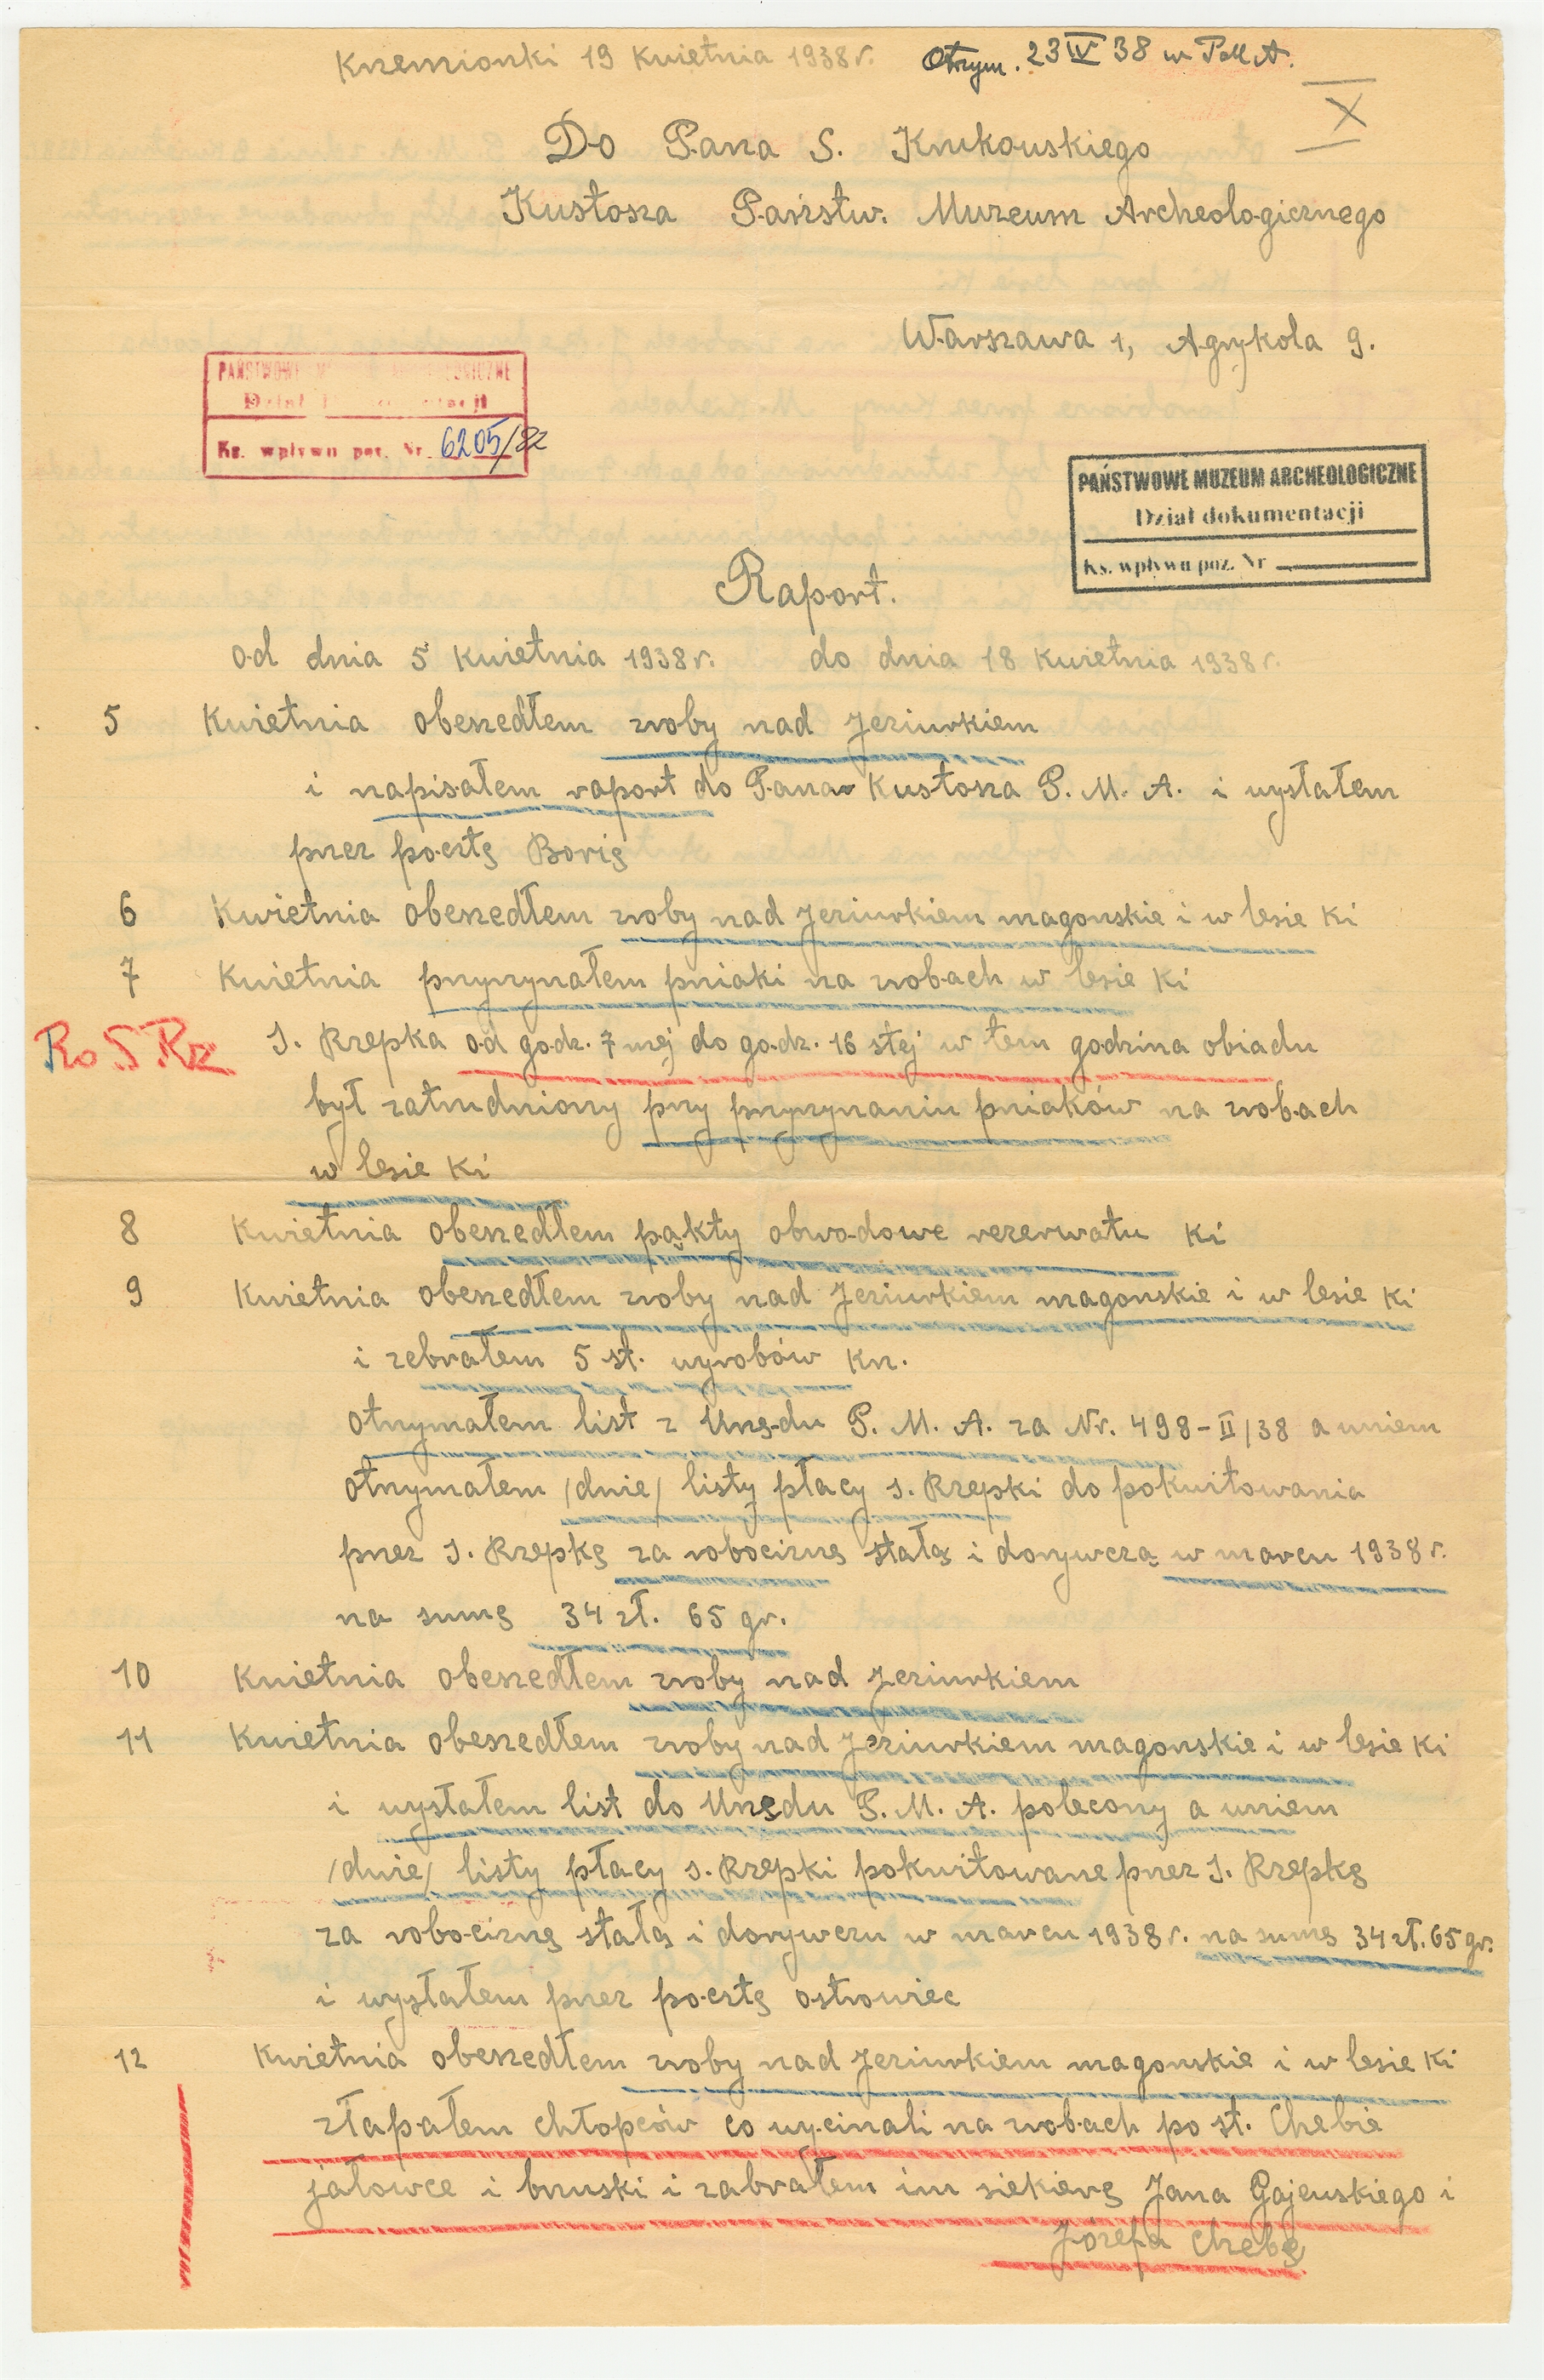 Krzemionki 19 Kwietnia 1938 r. Otrzym. 23 IV 38 w PMA.
X
Do Pana S. Krukowskiego
Kustosza Państw. Muzeum Archeologicznego
Warszawa 1, Agrykola 9.
PAŃSTWOWE MUZEUM ARCHEOLOGICZNE
Dział dokumentacji
Ks. wpływu poz. Nr. 6205/82
PAŃSTWOWE MUZEUM ARCHEOLOGICZNE
Dział dokumentacji
Ks. wpływu poz. Nr
Raport.
od dnia 5 Kwietnia 1938 r. do dnia 18 Kwietnia 1938 r.
5 Kwietnia obeszedłem zroby nad Jeziurkiem
i napisałem raport do Pana Kustosza P. M. A. i wysłałem
przez pocztę Borię
6 Kwietnia obeszedłem zroby nad Jeziurkiem magonskie i w lesie Ki
7 Kwietnia przyrzynałem pniaki na zrobach w lesie Ki
Ro S Rz J. Rzepka od godz. 7 mej do godz. 16 stej w tem godzina obiadu
był zatrudniony przy przyrzynaniu pniaków na zrobach
w lesie Ki
8 Kwietnia obeszedłem pąkty obwodowe rezerwatu Ki
9 Kwietnia obeszedłem zroby nad Jeziurkiem magonskie i w lesie Ki
i zebrałem 5 szt. wyrobów Krz.
otrzymałem list z Urzędu P. M. A. za Nr. 498-II/38 a wniem
otrzymałem /dwie/ listy płacy J. Rzepki do pokwitowania
przez J. Rzepkę za robociznę stałą i dorywczą w marcu 1938 r.
na sumę 34 zł. 65 gr.
10 Kwietnia obeszedłem zroby nad Jeziurkiem
11 Kwietnia obeszedłem zroby nad Jeziurkiem magonskie i w lesie Ki
i wysłałem list do Urzędu P. M. A. polecony a wniem
/dwie/ listy płacy J. Rzepki pokwitowane przez J. Rzepkę
za robociznę stałą i dorywczu w marcu 1938 r. na sumę 34 zł. 65 gr.
i wysłałem przez pocztę ostrowiec
12 Kwietnia obeszedłem zroby nad Jeziurkiem magonskie i w lesie Ki
złapałem chłopców co wycinali na zrobach po st. Chebie
jałowce i bruski i zabrałem im siekierę Jana Gajewskiego i
Józefa Chebę